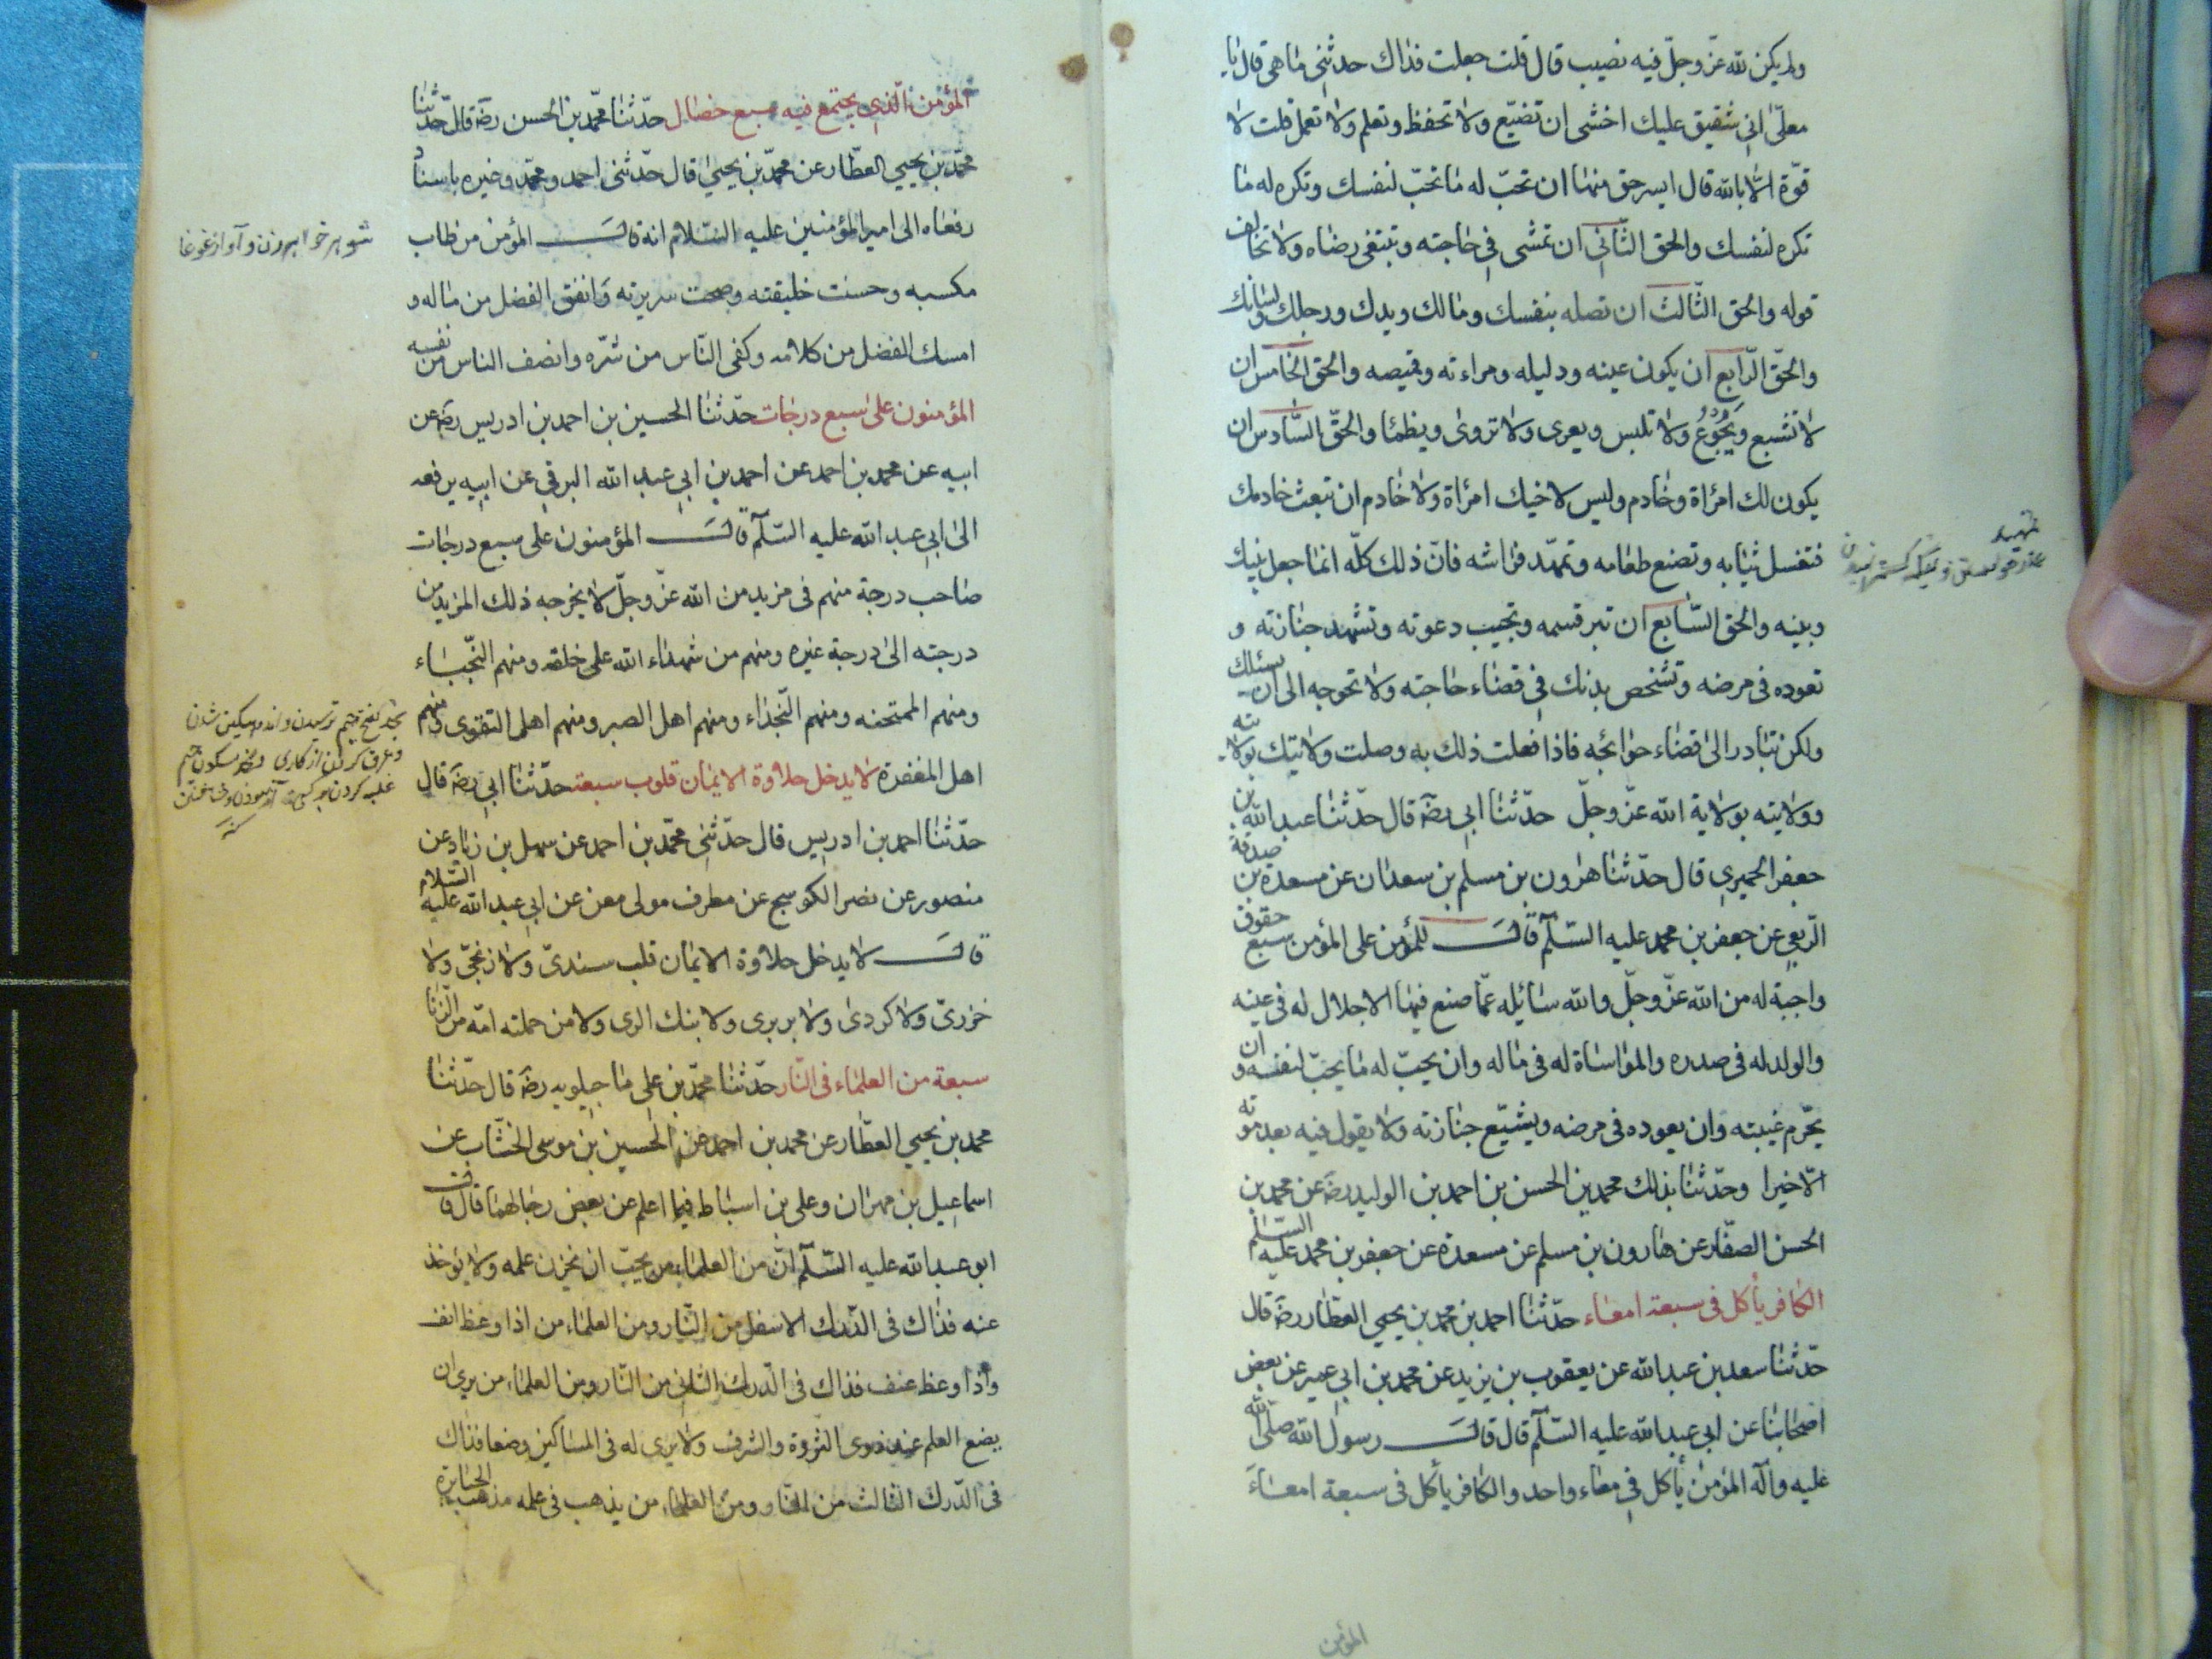 ولم يكن لله عزّ وجلّ فيه نصيب قال قلت جعلت فداك حدثنى ما هى قال يا
معلّى انى شفيق عليك اخشى ان تضيّع ولا تحفظ وتعلم ولا تعمل قلت لا
قوّة الّا بالله قال ايسر حق منها ان تحبّ له ما تحبّ لنفسك وتكره له ما
تكره لنفسك والحق الثّانى ان تمشى فى حاجته وتبتغى رضاه ولا تخالف
قوله والحق الثّالث ان تصله بنفسك ومالك ويدك ورجلك ولسانك
والحقّ الرّابع ان يكون عينه ودليله ومراءته وقميصه والحق الخامس ان
لا تشبع ويَجُوع ولا تلبس ويعرى ولا تروى ويظمئا والحقّ السّادس ان
يكون لك امرأة وخادم وليس لاخيك امرأة ولا خادم ان تبعث خادمك
فتغسل ثيابه وتصنع طعامه وتمهّد فراشه فانّ ذلك كلّه انما جعل بينك
وبينه والحق السّابع ان تبر قسمه وتجيب دعوته وتشهد جنازته و
تعوده فى مرضه وتشخص بدنك فى قضاء حاجته ولا تحوجه الى ان يسئلك
ولكن تبادر الى قضاء حوائجه فاذا فعلت ذلك به وصلت ولايتك بولايته
وولايته بولاية الله عزّ وجلّ حدّثنا ابى رضه قال حدّثنا عبد الله بن
جعفر الحميرى قال حدّثنا هرون بن مسلم بن سعدان عن مسعدة بن صدقة
الرّبعى عن جعفر بن محمد عليه السّلم قال للمؤمن على المؤمن سبع حقوق
واجبة له من الله عزّ وجلّ والله سائيله عمّا صنع فيها الاجلال له فى عينه
والولد له فى صدره والمؤاساة له فى ماله وان يحبّ له ما يحبّ لنفسه وان
يحّرم غيبته وان يعوده فى مرضه ويشيّع جنازته ولا يقول فيه بعد موته
الّا خيرا وحدّثنا بذلك محمد بن الحسن بن احمد بن الوليد رضه عن محمد بن
الحسن الصفّار عن هارون بن مسلم عن مسعدة عن جعفر بن محمد عليه السّلم
الكافر يأكل فى سبعة امعاء حدّثنا احمد بن محمد بن يحيى العطّار رضه قال
حدّثنا سعد بن عبد الله عن يعقوب بن يزيد عن محمد بن ابى عمير عن بعض
اصحابنا عن ابى عبد الله عليه السّلم قال قال رسول الله صلّى الله
عليه وآله المؤمن يأكل فى معاء واحد والكافر يأكل فى سبعة امعاء
المؤمن
المؤمن الّذى يجتمع فيه سبع خصال حدّثنا محمّد بن الحسن رضه قال حدّثنا
محمّد بن يحيى العطّار عن محمّد بن يحيى قال حدّثنى احمد ومحمّد وغيره باسناد
رفعاه الى امير المؤمنين عليه السّلام انه قال المؤمن من طاب
مكسبه وحسنت خليقته وصحت سريرته وانفق الفضل من ماله و
امسك الفضل من كلامه وكفى النّاس من شرّه وانصف الناس من نفسه
المؤمنون على سبع درجات حدّثنا الحسين بن احمد بن ادريس رضه عن
ابيه عن محمد بن احمد عن احمد بن ابى عبد الله البرقى عن ابيه يرفعه
الى ابى عبد الله عليه السّلم قال المؤمنون على سبع درجات
صاحب درجة منهم فى مزيد من الله عزّ وجلّ لا يخرجه ذلك المزيد من
درجته الى درجة غيره ومنهم من شهداء الله على خلقه ومنهم النّجباء
ومنهم الممتحنه ومنهم النّجداء ومنهم اهل الصبر ومنهم اهل التقوى ومنهم
اهل المغفرة لا يدخل حلاوة الايمان قلوب سبعة حدّثنا ابى رضه قال
حدّثنا احمد بن ادريس قال حدّثنى محمّد بن احمد عن سهل بن زياد عن
منصور عن نصر الكوسج عن مطرف مولى معن عن ابى عبد الله عليه السّلام
قال لا يدخل حلاوة الايمان قلب سندىّ ولا زنجىّ ولا
خزرىّ ولا كردى ولا بربرى ولا بنك الرى ولا من حملته امّه من الزّنا
سبعة من العلماء فى النّار حدّثنا محمّد بن على ماجيلويه رضه قال حدّثنا
محمد بن يحيى العطّار عن محمد بن احمد عن الحسين بن موسى الخشّاب عن
اسماعيل بن مهران وعلى بن اسباط فيما اعلم عن بعض رجالهما قال قال
ابو عبد الله عليه السّلم انّ من العلماء من يحبّ ان يخزن علمه ولا يؤخذ
عنه فذاك فى الدّرك الاسفل من النّار ومن العلماء من اذا وعظ انف
واذا وعظ عنف فذاك فى الدّرك الثانى من النّار ومن العلماء من يرى ان
يضع العلم عند ذوى الثروة والشرف ولا يرى له فى المساكين وضعا فذاك
فى الدّرك الثالث من النّار ومن العلماء من يذهب فى علمه مذهب الجبابرة
شوهر خواهر زن و آواز غوغا